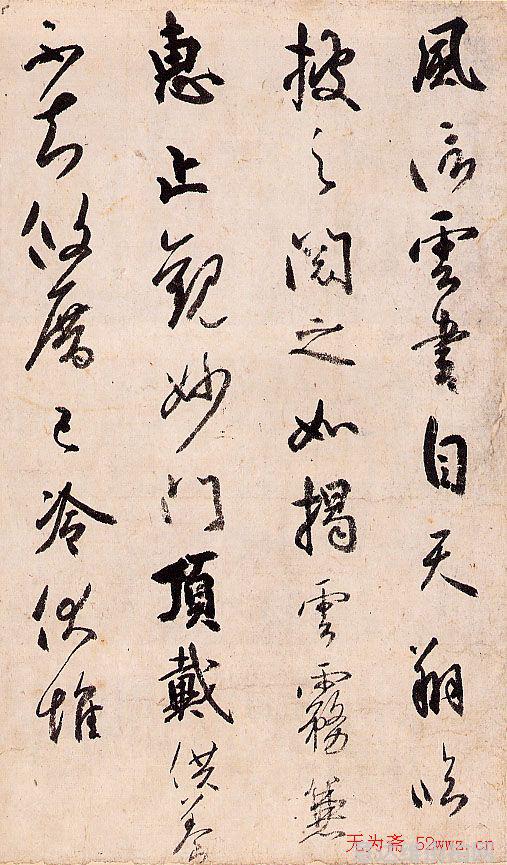 風信雲書自天翔臨
披之閱之如揭雲霧兼
惠止觀妙門頂戴供養
不知攸厝已冷伏惟
无为斋 52wwz.cn